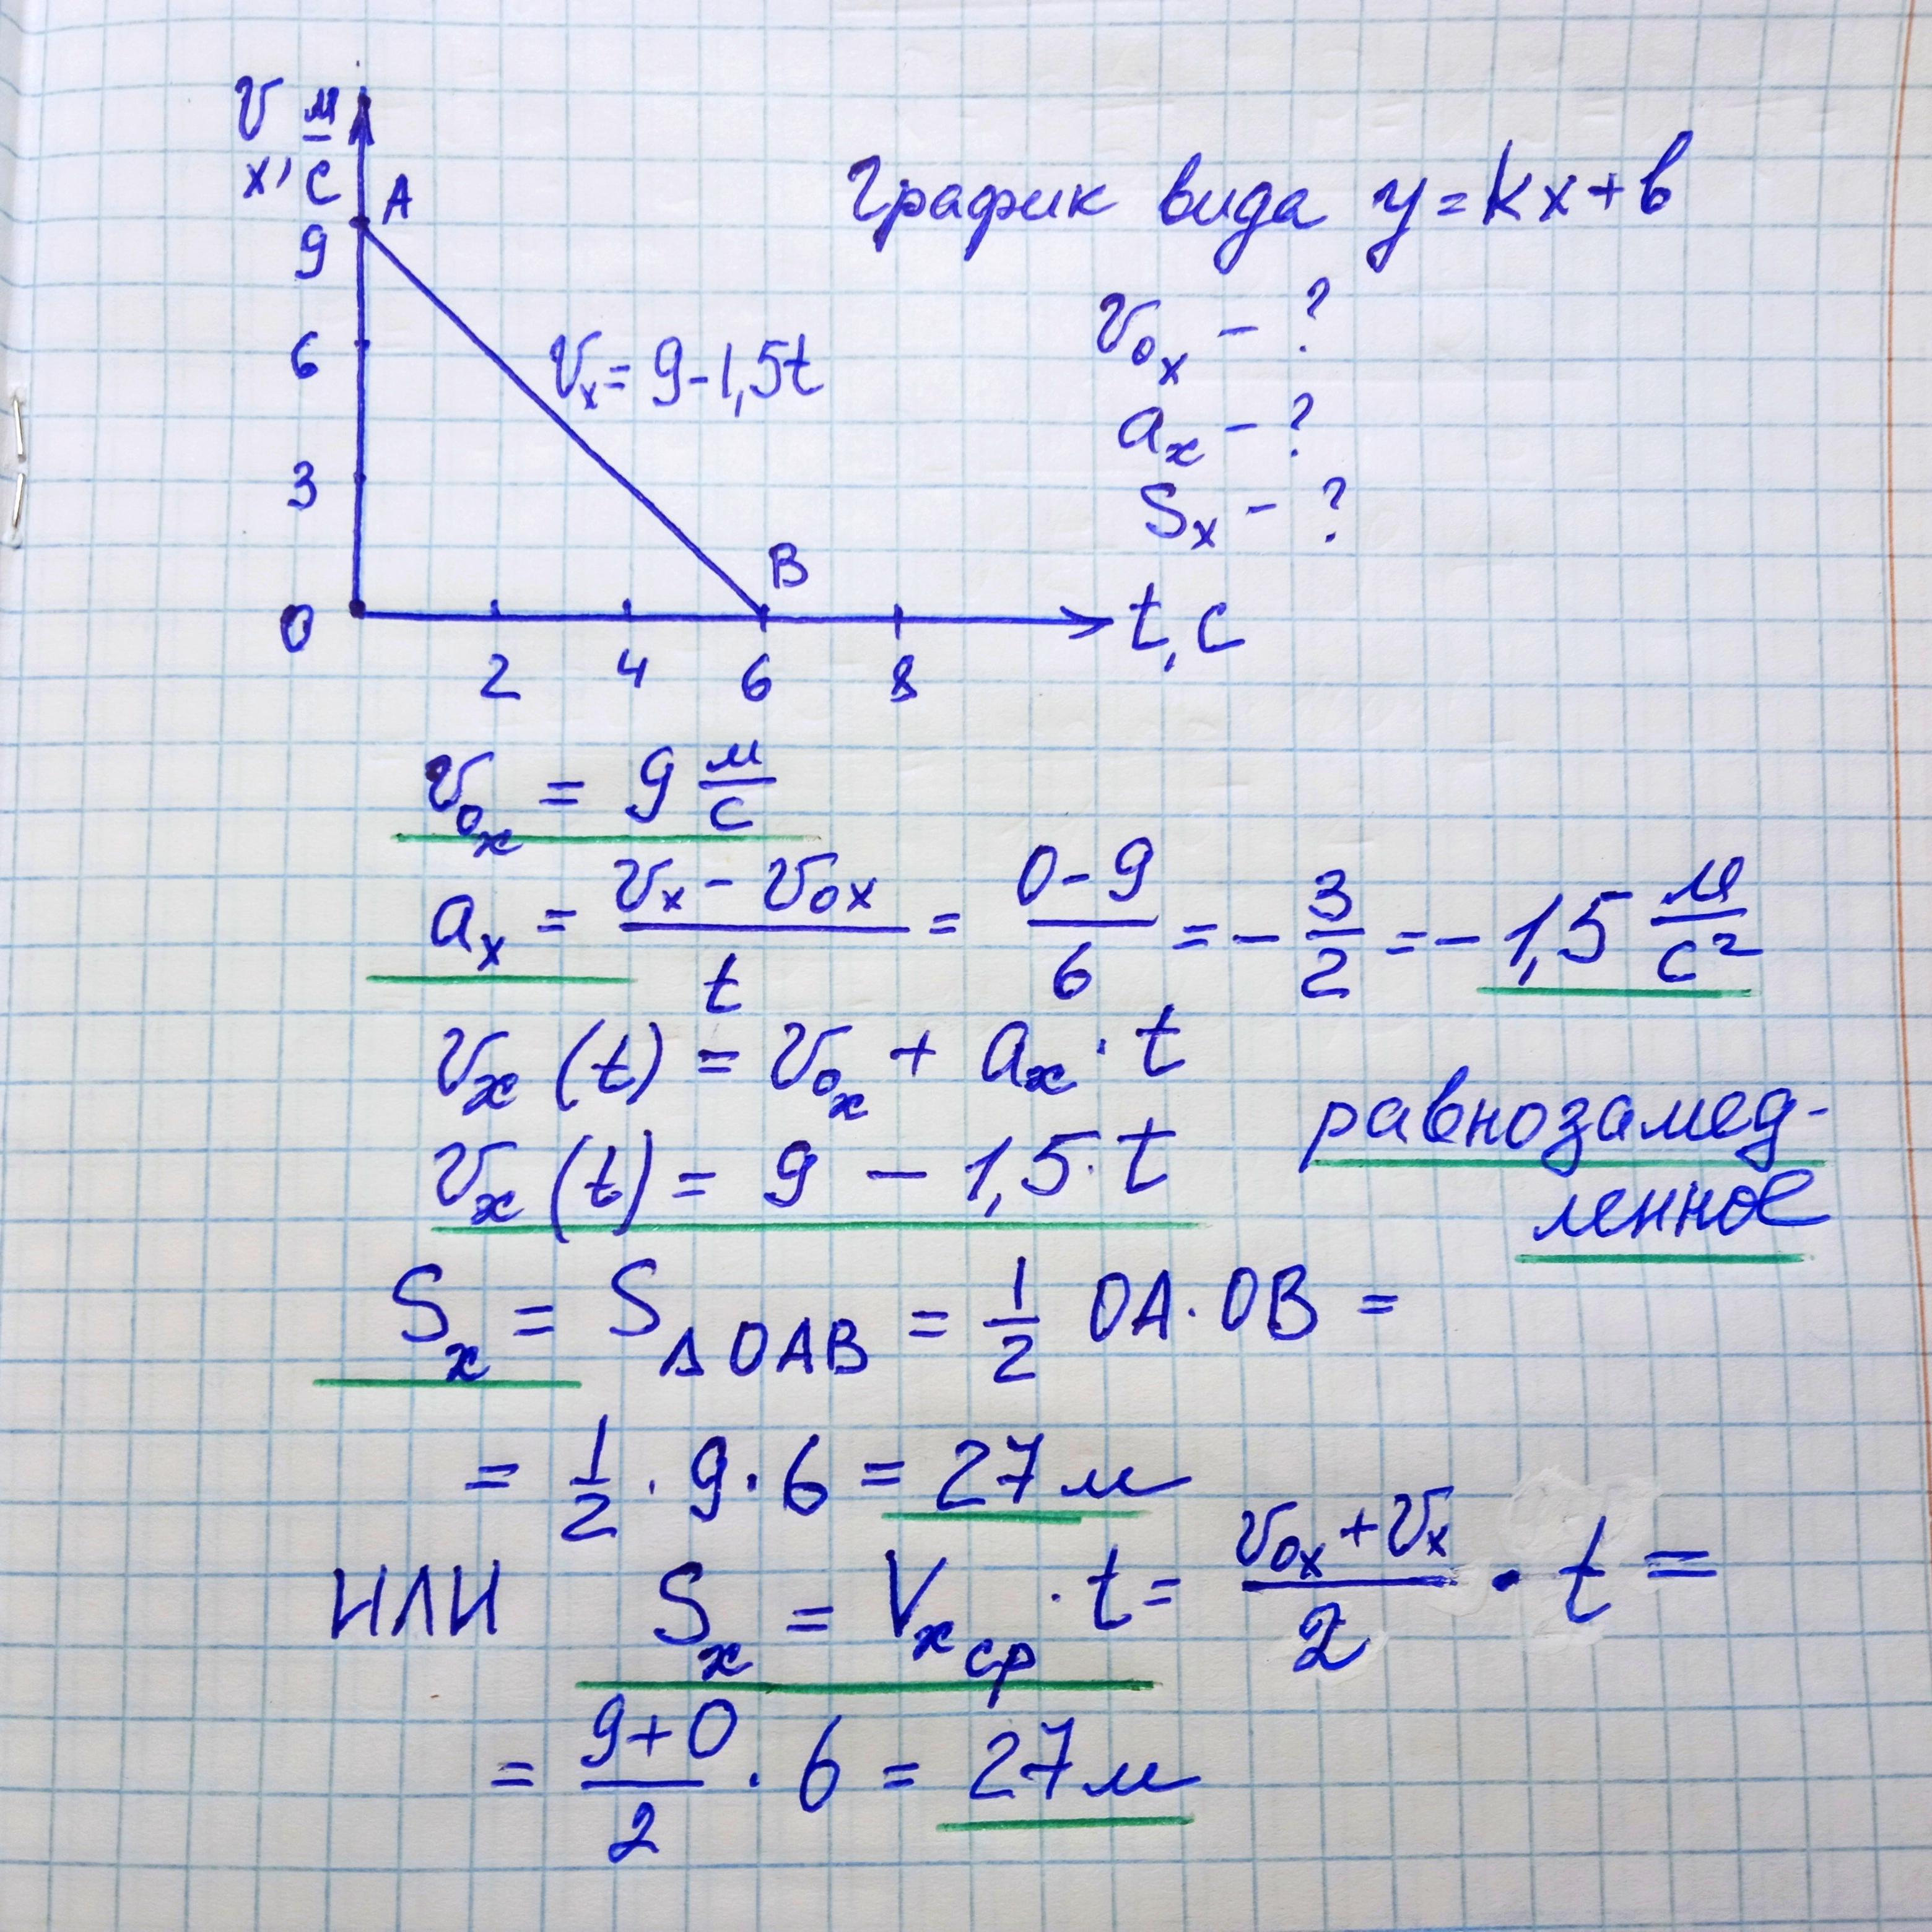 v_x, м/с
A
9
6
3
0
2 4 6 8
B
t, с
v_x = 9 - 1,5t
График вида y = kx + в
v_0x - ?
a_x - ?
S_x - ?
v_0x = 9 м/с
a_x = (v_x - v_0x)/t = (0 - 9)/6 = - 3/2 = - 1,5 м/с²
v_x (t) = v_0x + a_x · t
v_x (t) = 9 - 1,5 · t
равнозамед-
ленное
S_x = S_ΔOAB = 1/2 OA · OB =
= 1/2 · 9 · 6 = 27 м
или S_x = V_x ср · t = (v_0x + v_x)/2 · t =
= (9 + 0)/2 · 6 = 27 м